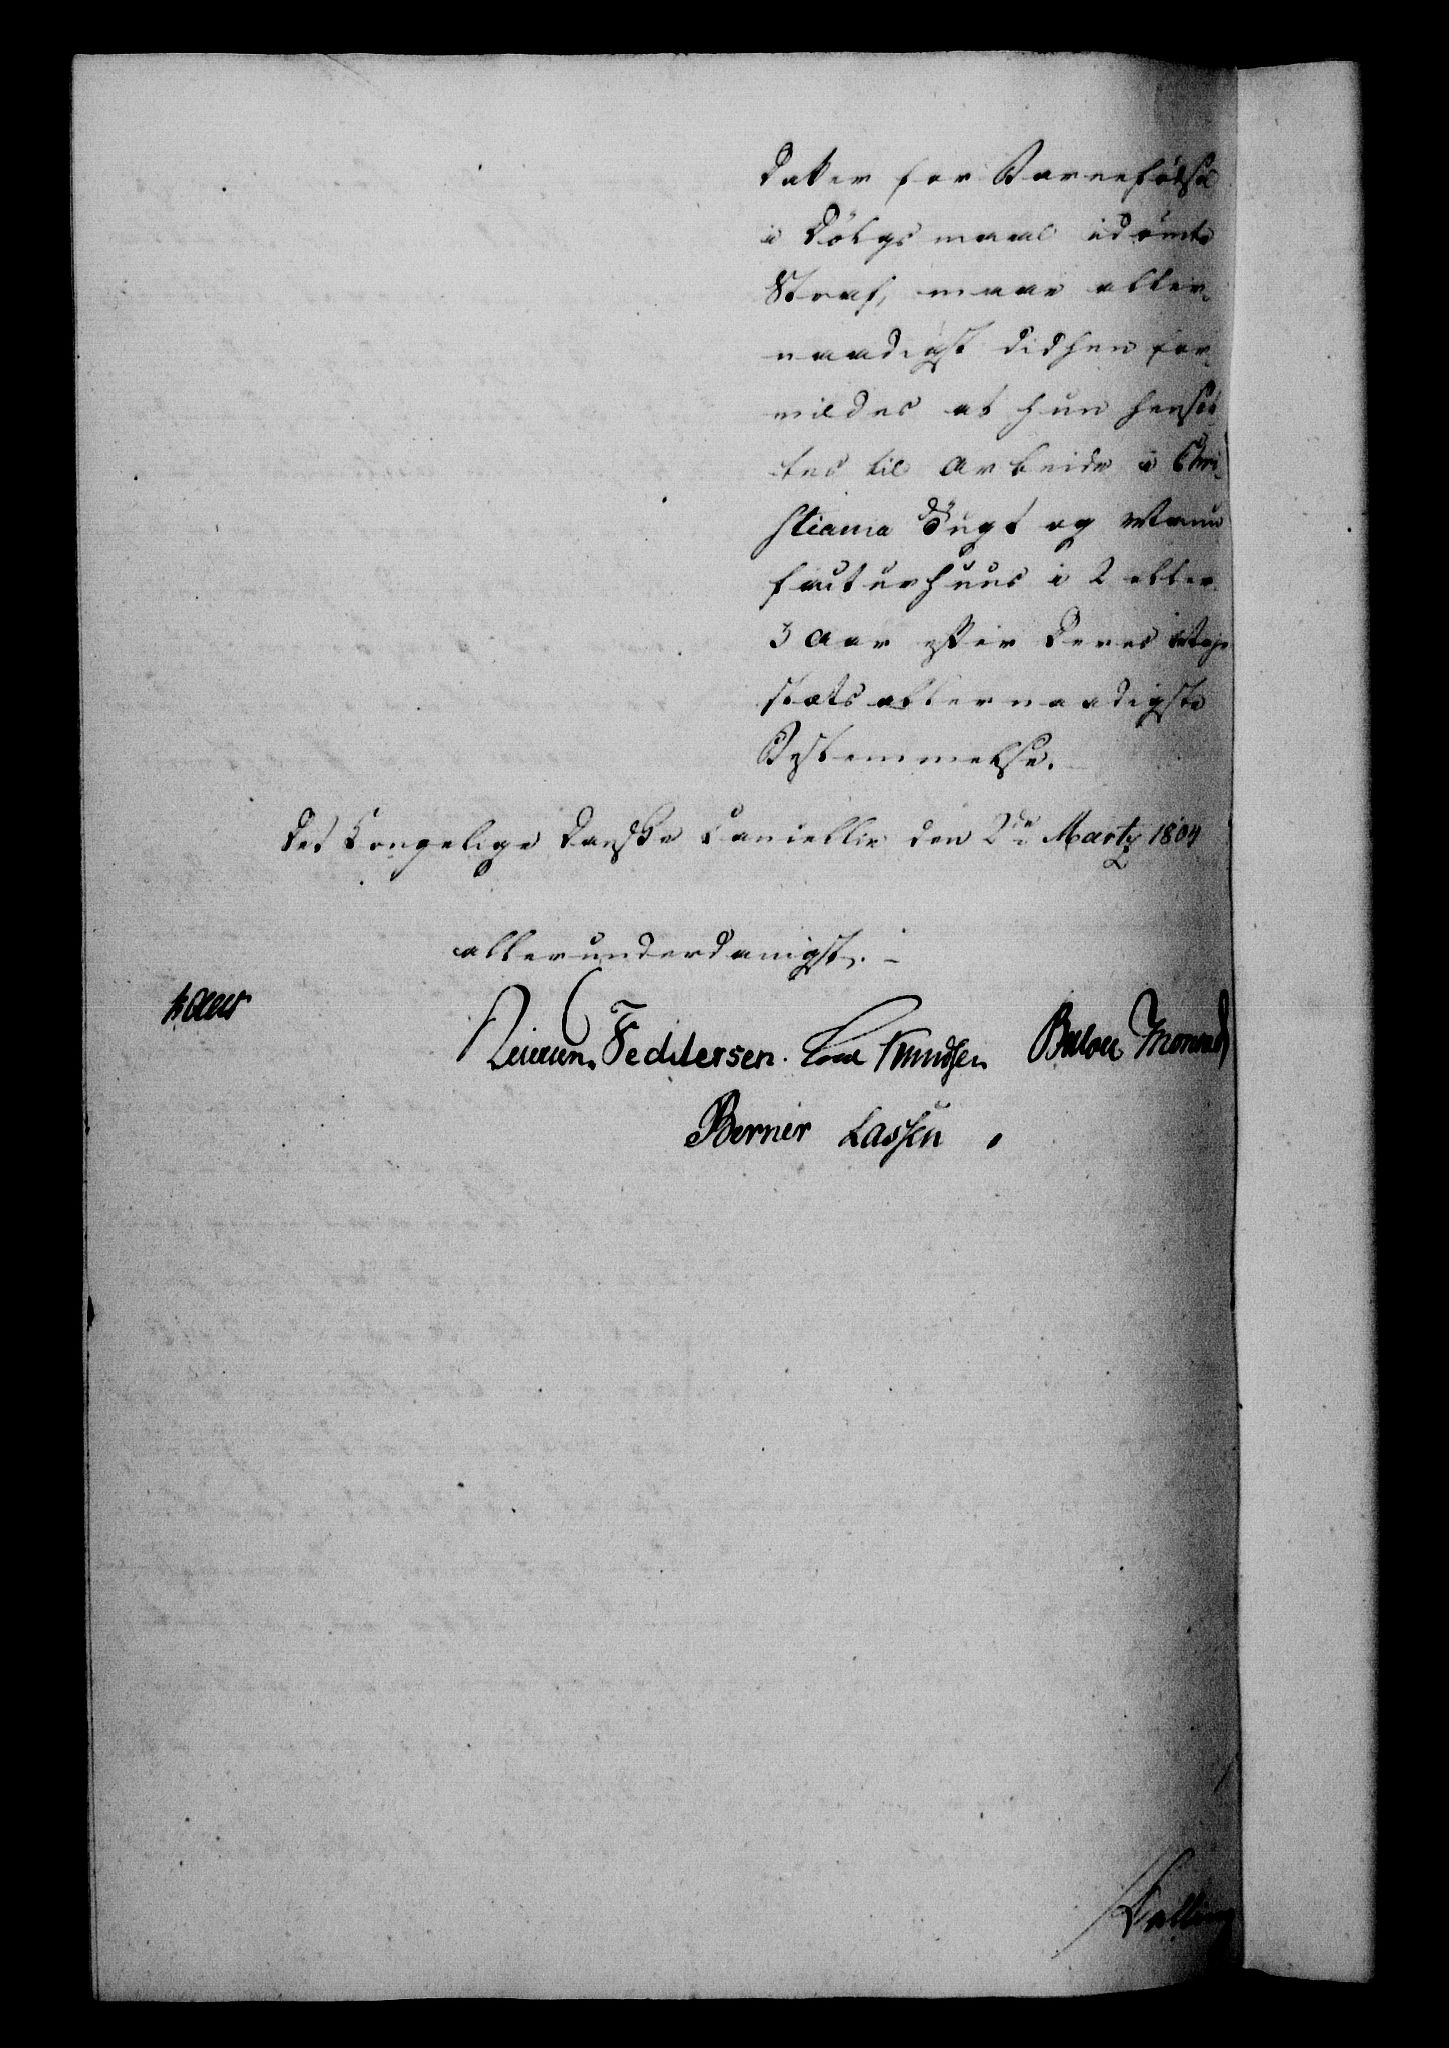 datter for Barnefødsel
i Dølgsmaal idømte
Straf, maae aller-
naadigst didhen for-
mildes at hun hensæt-
tes til Arbeide i Chri-
stiania Tugt og Manu
facturhuus i 2 eller
3 Aar efter Deres Maje
stæts allernaadigste
Bestemmelse.
Det Kongelige Danske Cancellie den 2de Marty 1804
allerunderdanigst.
Feddersen. Knudsen Bülow Monrad
Berner Lassen